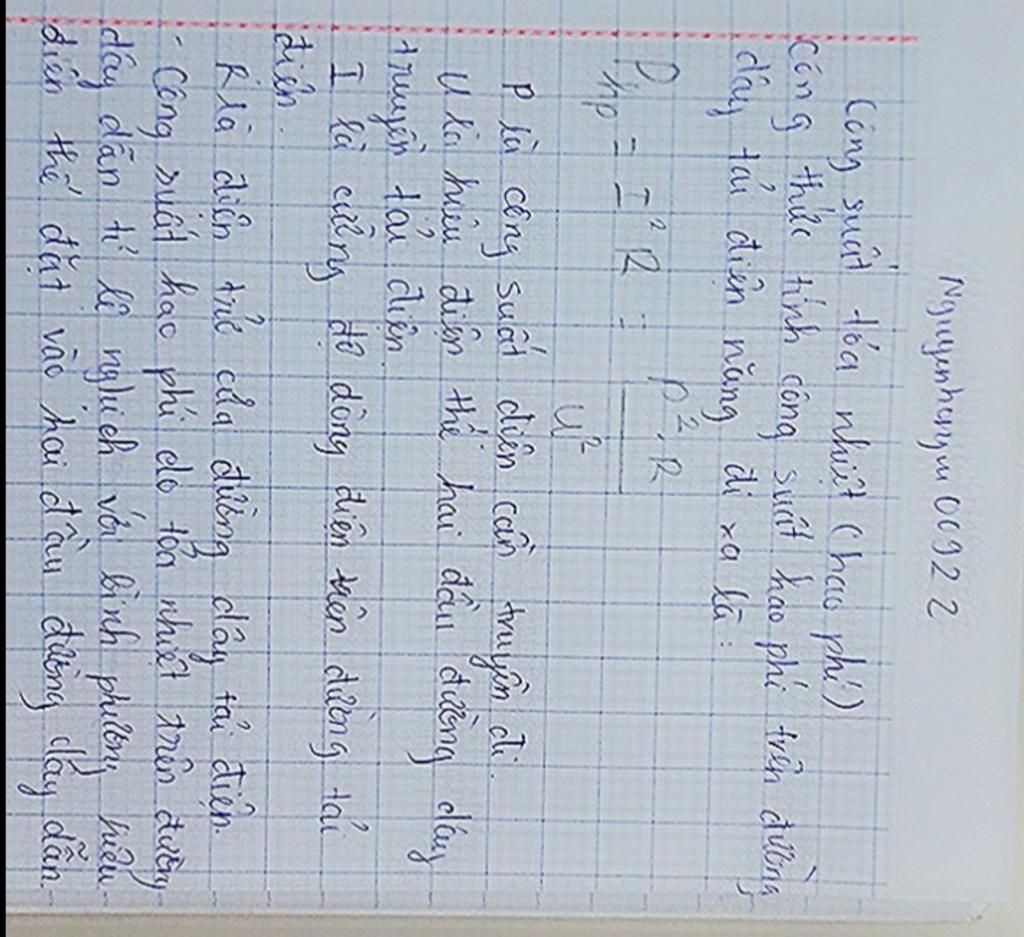 Nguyenhuyen00922
Công suất tỏa nhiệt (hao phí)
Công thức tính công suất hao phí trên đường
dây tải điện năng đi xa là:
Php = I² R = P². R / U²
P là công suất điện cần truyền đi.
U là hiệu điện thế hai đầu đường dây
truyền tải điện
I là cường độ dòng điện trên đường tải
điện.
R là điện trở của đường dây tải điện.
- Công suất hao phí do tỏa nhiệt trên đường
dây dẫn tỉ lệ nghịch với bình phương hiệu
điện thế đặt vào hai đầu đường dây dẫn.